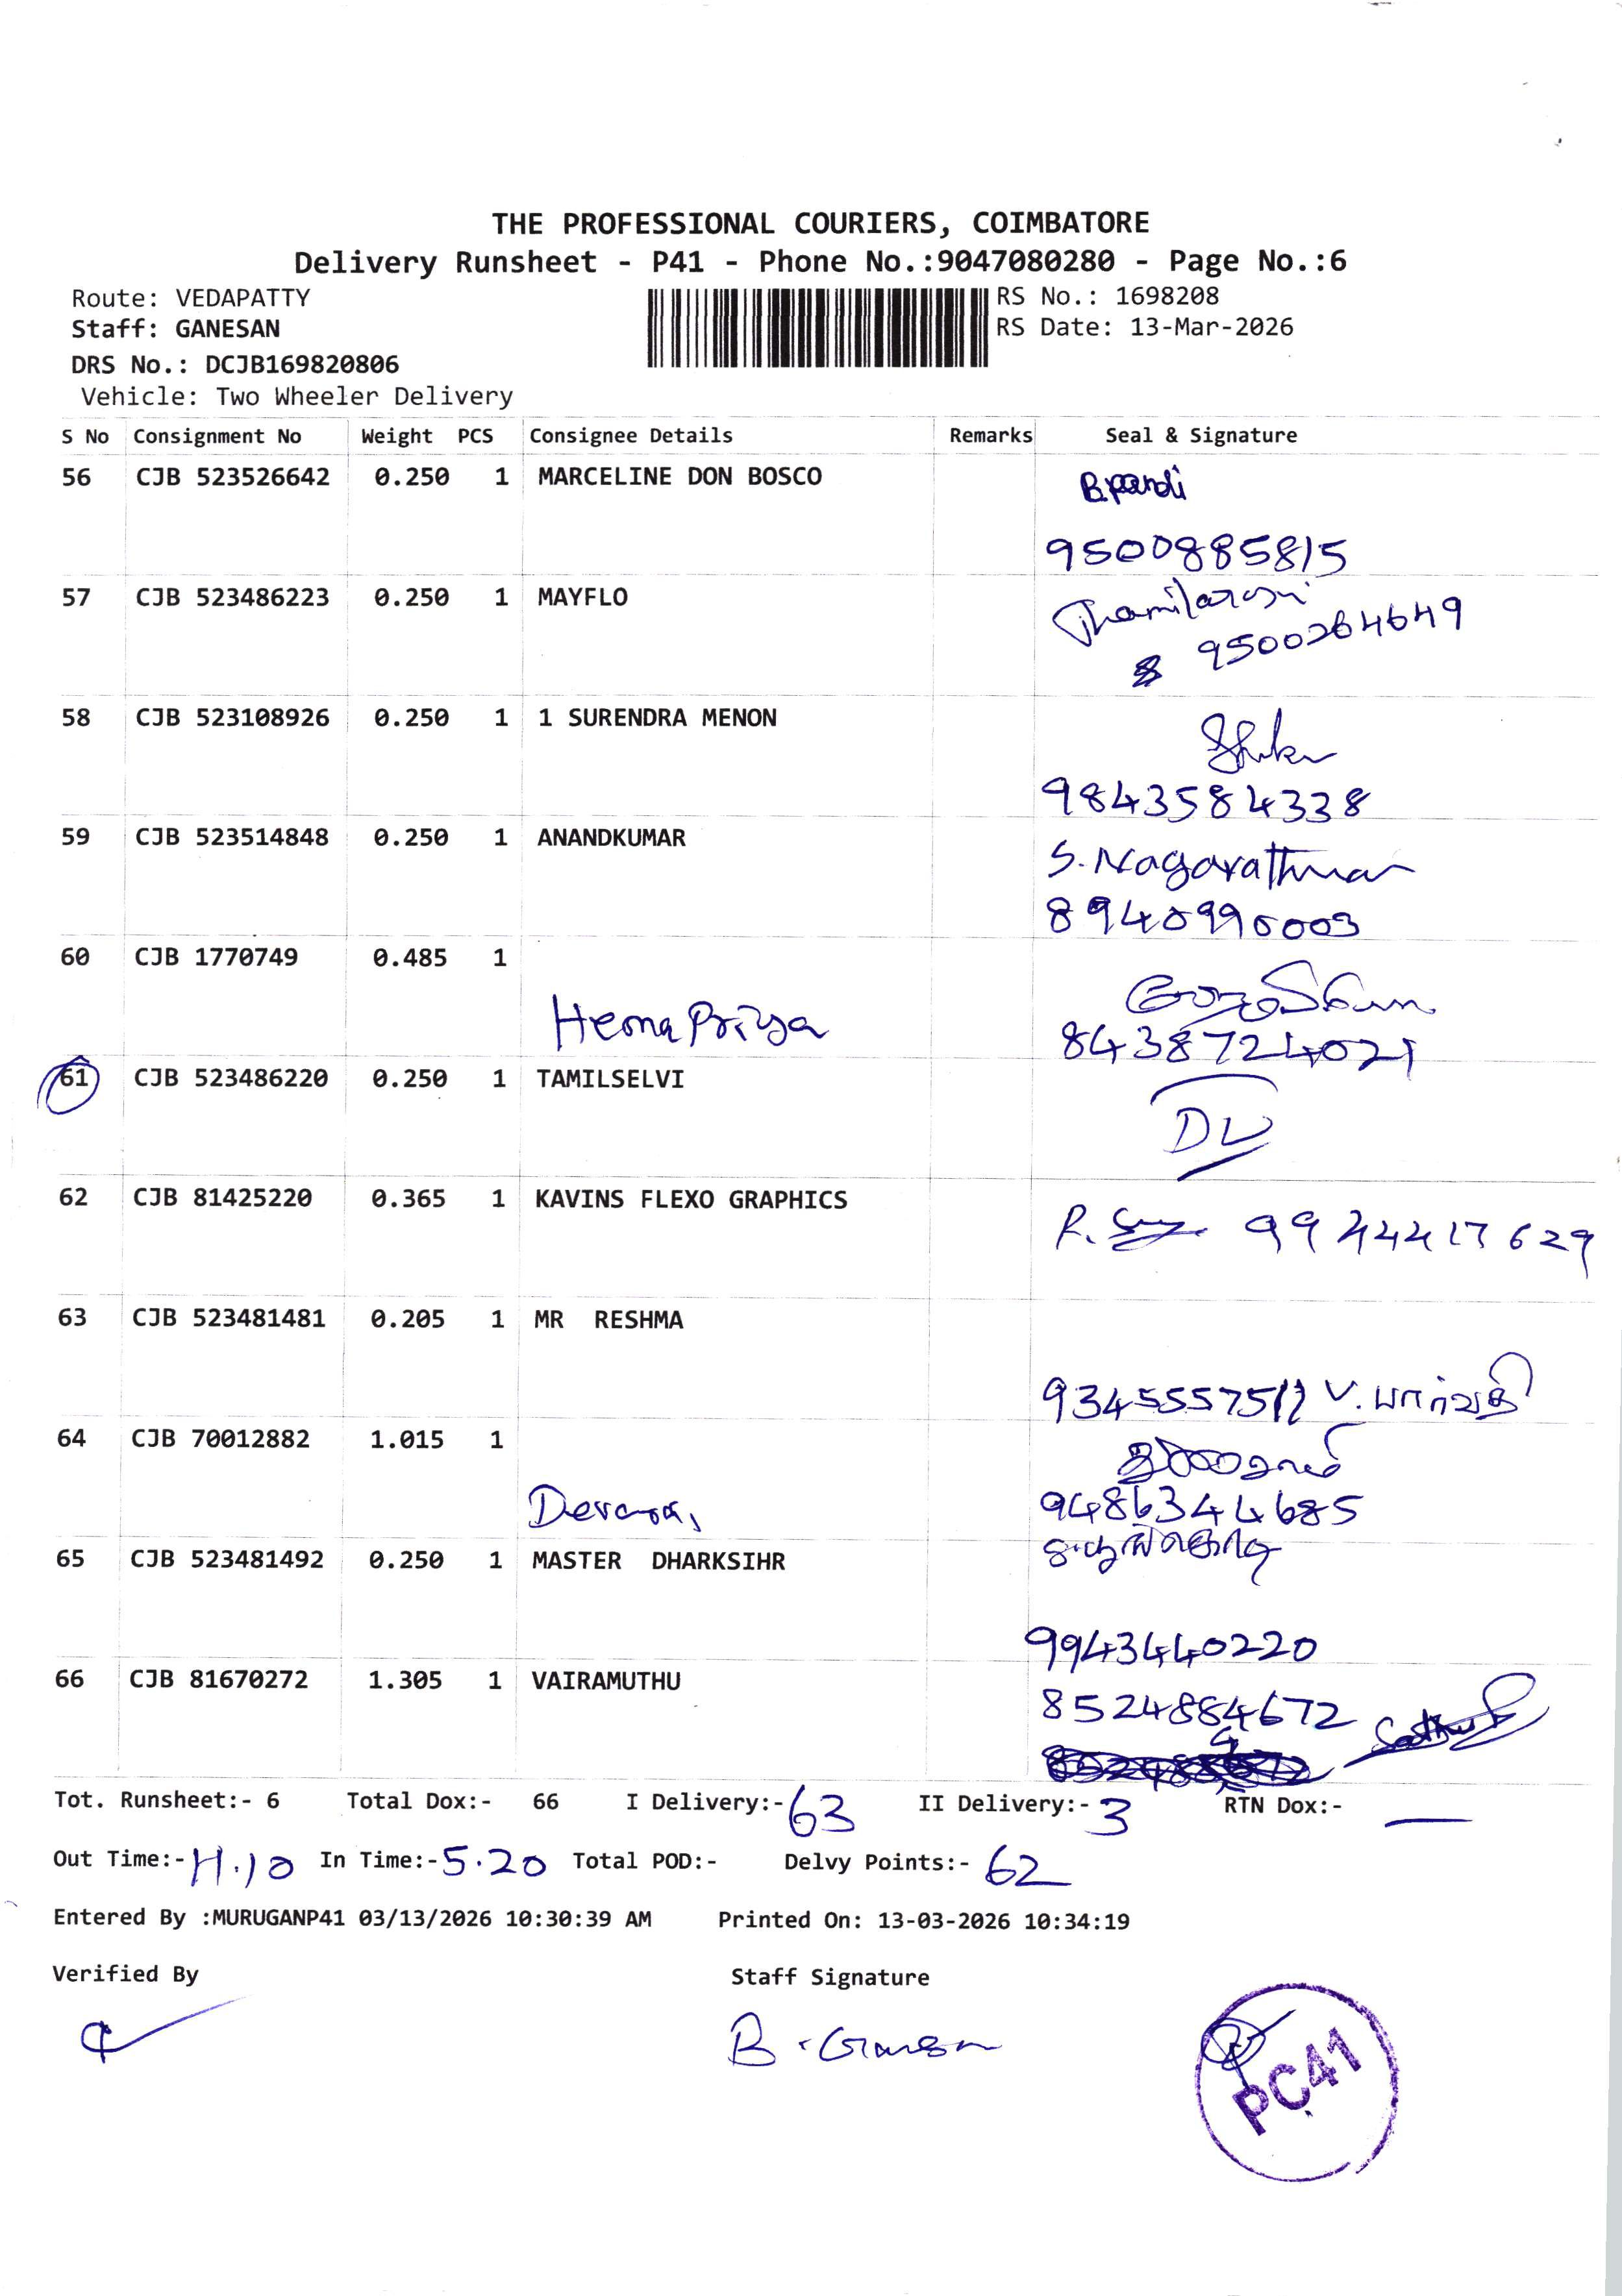 THE PROFESSIONAL COURIERS, COIMBATORE
Delivery Runsheet - P41 - Phone No.:9047080280 - Page No.:6
Route: VEDAPATTY
RS No.: 1698208
Staff: GANESAN
RS Date: 13-Mar-2026
DRS No.: DCJB169820806
Vehicle: Two Wheeler Delivery
S No Consignment No Weight PCS Consignee Details Remarks Seal & Signature
56 CJB 523526642 0.250 1 MARCELINE DON BOSCO B.pandi
9500885815
57 CJB 523486223 0.250 1 MAYFLO Thamilarasi
9500264649
58 CJB 523108926 0.250 1 1 SURENDRA MENON
9843584338
59 CJB 523514848 0.250 1 ANANDKUMAR S. Nagarathnam
8940990003
60 CJB 1770749 0.485 1
Hema Priya 8438724021
61 CJB 523486220 0.250 1 TAMILSELVI
DL
62 CJB 81425220 0.365 1 KAVINS FLEXO GRAPHICS
R. 9944417629
63 CJB 523481481 0.205 1 MR RESHMA
9345557511 V. பார்வதி
64 CJB 70012882 1.015 1
9486344685
65 CJB 523481492 0.250 1 MASTER DHARKSIHR
9943440220
66 CJB 81670272 1.305 1 VAIRAMUTHU
8524884672
Tot. Runsheet:- 6 Total Dox:- 66 I Delivery:- 63 II Delivery:- 3 RTN Dox:- —
Out Time:- 11.10 In Time:- 5.20 Total POD:- Delvy Points:- 62
Entered By :MURUGANP41 03/13/2026 10:30:39 AM Printed On: 13-03-2026 10:34:19
Verified By Staff Signature
B. Ganesan
PC41